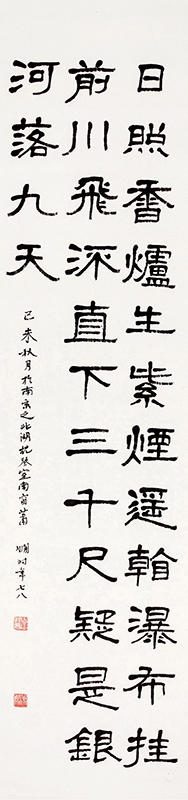 日照香爐生紫煙遙看瀑布挂
前川飛流直下三千尺疑是銀
河落九天
己未秋月於南京之北湖枕琴室南窗蕭
嫻時年七八